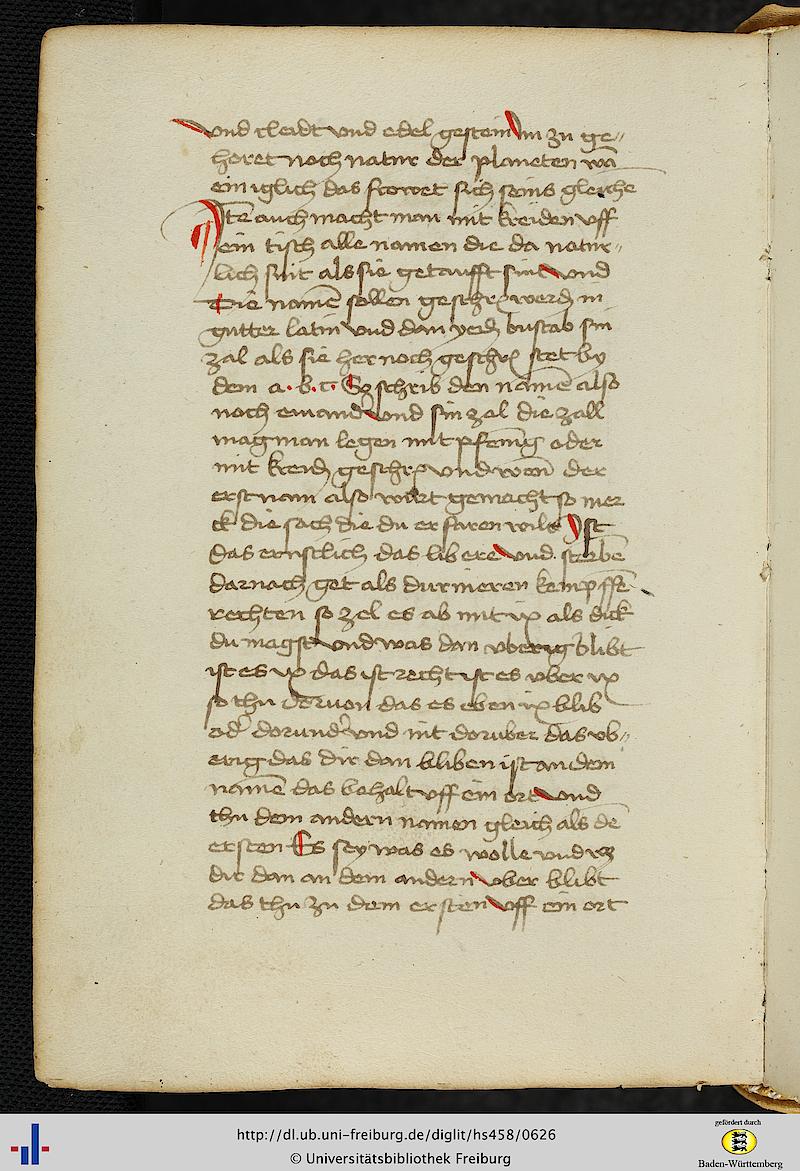 vnd cleidt vnd edel gestein im zu ge⸗
horet noch natur der planeten wā
ein iglich das frowet sich seins gleiche
Jtē auch macht man mit kreiden vff
ein tisch alle namen die da natur⸗
lich sint als sie getaufft sint vnd
Die namē sollen geschr werdē in
gutter latin vnd dan yedē bustab sin
zal als sie her noch geschrẽ stet by
dem a. b. c. So schrib den namē also
noch einandˀ vnd sin zal die zall
mag man legen mit pfenig oder
mit kreidē geschr vnd wen der
erst nam also wirt gemacht so mer
ck die sach die du erfaren wilt Jst
das ernstlich das libere vnd sterbē
darnach get als durnieren kempffē
rechten so zel es ab mit ix als dick
du magst vnd was dan vberig blibt
ist es ix das ist recht ist es vber ix
so thu dervon das es eben ix blib
odˀ dorundˀ vnd nit doruber das vb⸗
erig das dir dan bliben ist an dem
namē das behalt vff ein ort vnd
thu dem andern namen gleich als dē
ersten Es sey was es wolle vnd wz
dir dan an dem andern vber blibt
das thu zu dem ersten vff ein ort
http://dl.ub.uni-freiburg.de/diglit/hs458/0626
© Universitätsbibliothek Freiburg
gefördert durch
Baden-Württemberg